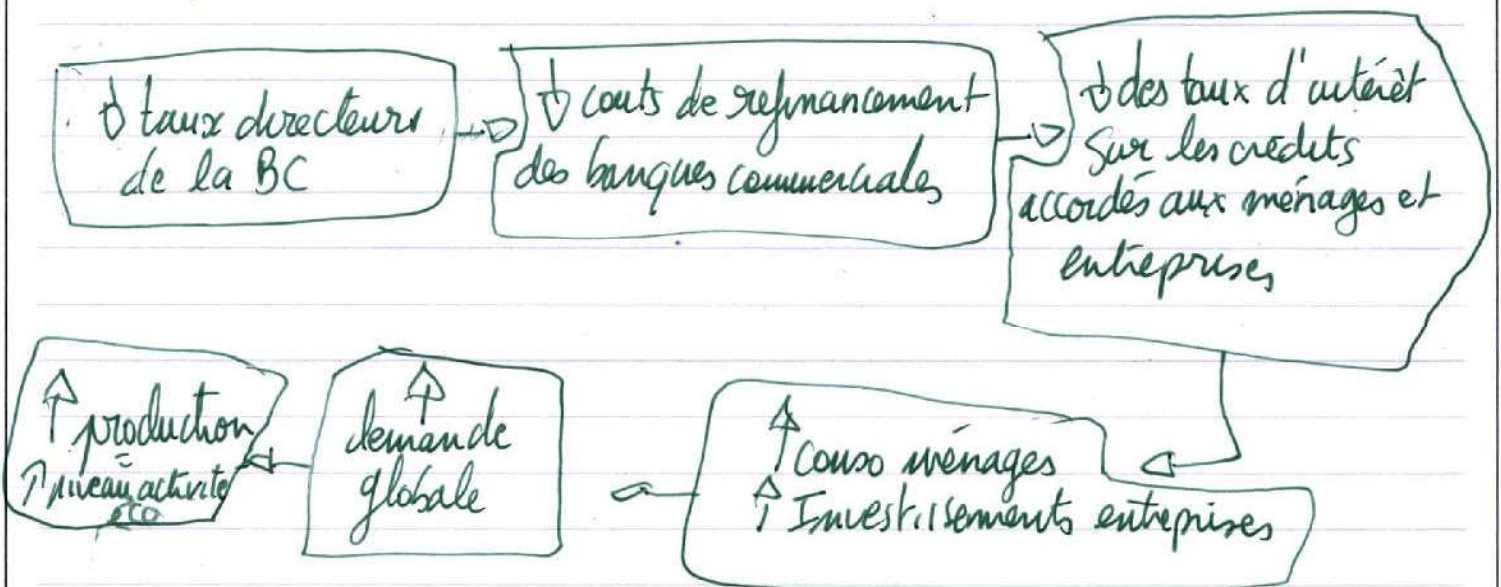 ↓ taux directeurs
de la BC
↓ couts de refinancement
des banques commerciales
↓ des taux d'intérêt
Sur les crédits
accordés aux ménages et
entreprises
↑ Conso ménages
↑ Investissements entreprises
↑
demande
globale
↑ production
=
↑ niveau activité
éco